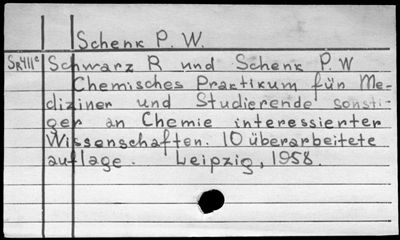 Schenk P. W.
Sn411c Schwarz R und Schenk P. W
Chemisches Praktikum für Me-
diziner und Studierende sonsti-
ger an Chemie interessierter
Wissenschaften. 10 überarbeitete
auflage. Leipzig, 1958.